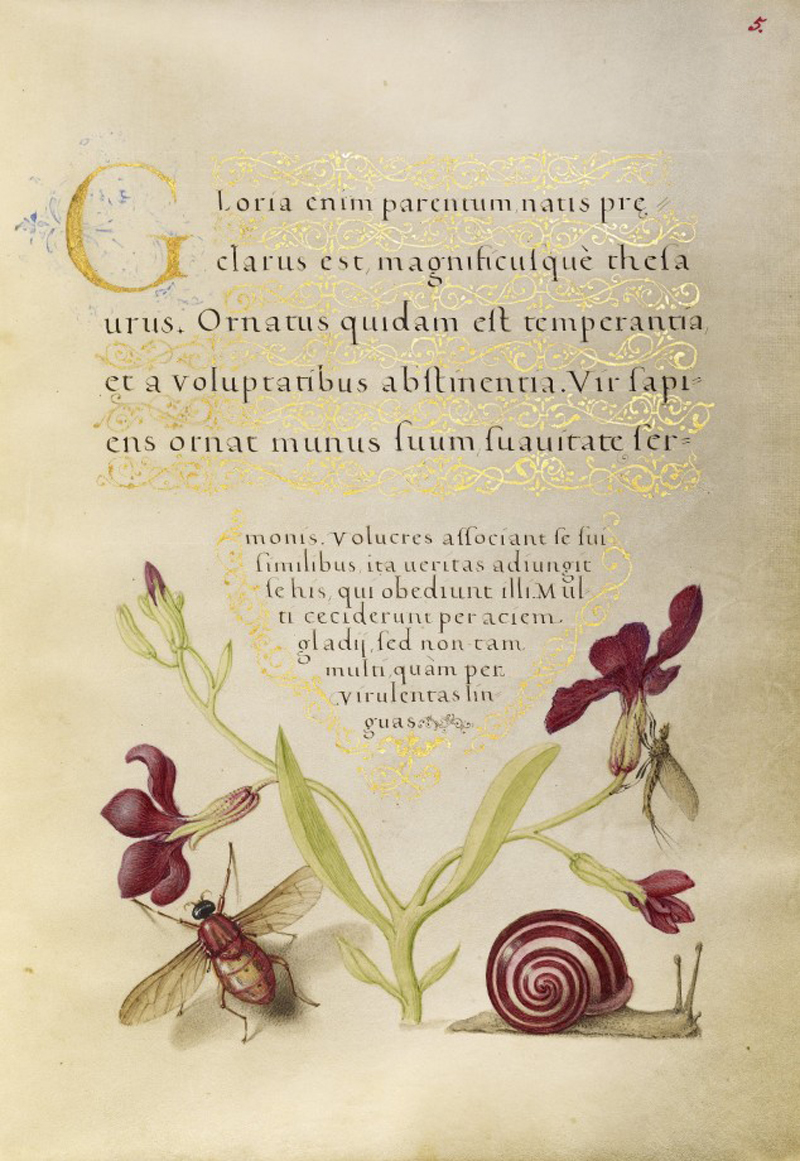 5.
Gloria enim parentum, natis prę=
clarus est, magnificuſquè theſa
urus. Ornatus quidam eſt temperantia,
et a voluptatibus abſtinentia. Vir ſapi=
ens ornat munus ſuum ſuauitate ſer=
monis. Volucres aſſociant ſe ſui
ſimilibus, ita ueritas adiungit
ſe his, qui obediunt illi. Mul
ti ceciderunt per aciem
gladij, ſed non tam
multi, quàm per
virulentas lin
guas